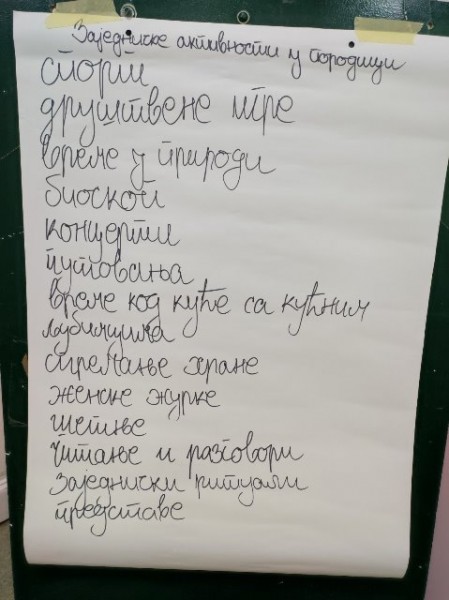 Заједничке активности у породици
спорт
друштвене игре
време у природи
биоскоп
концерти
путовања
време код куће са кућним
љубимцима
спремање хране
женске журке
шетње
читање и разговори
заједнички ритуали
представе